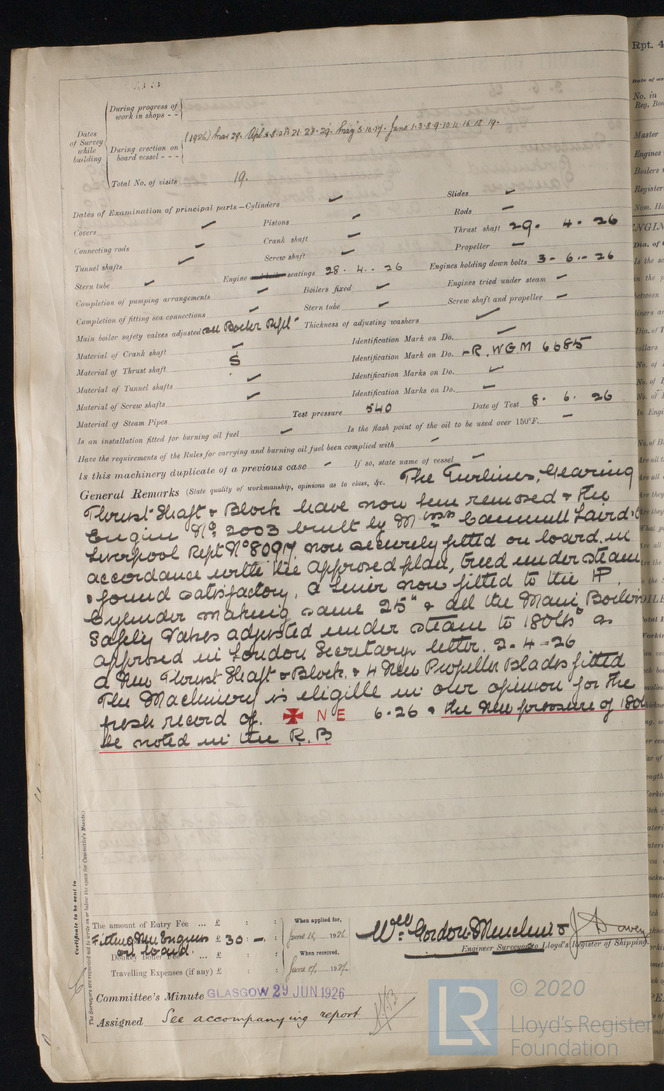 During progress of work in shops - -
Dates of Survey while building
(1926) Mar 29. Apl 6.8. 21. 28. 29. May 5. 10. 17. June 1. 3. 8. 9. 10. 11. 16. 18. 19.
During erection on board vessel - - -
Total No. of visits 19.
Dates of Examination of principal parts—Cylinders ✓ Slides ✓
Covers ✓ Pistons ✓ Rods ✓
Connecting rods ✓ Crank shaft ✓ Thrust shaft 29. 4. 26
Tunnel shafts ✓ Screw shaft ✓ Propeller ✓
Stern tube ✓ Engine and boiler seatings 28. 4. 26 Engines holding down bolts 3 - 6 - 26
Completion of pumping arrangements ✓ Boilers fixed ✓ Engines tried under steam ✓
Completion of fitting sea connections ✓ Stern tube ✓ Screw shaft and propeller ✓
Main boiler safety valves adjusted See Boiler Rept Thickness of adjusting washers ✓
Material of Crank shaft ✓ Identification Mark on Do. ✓
Material of Thrust shaft S Identification Mark on Do. - R. WGM 6685
Material of Tunnel shafts ✓ Identification Marks on Do. ✓
Material of Screw shafts ✓ Identification Marks on Do. ✓
Material of Steam Pipes Test pressure 540 Date of Test 8. 6. 26
Is an installation fitted for burning oil fuel ✓ Is the flash point of the oil to be used over 150°F. –
Have the requirements of the Rules for carrying and burning oil fuel been complied with ✓
Is this machinery duplicate of a previous case ✓ If so, state name of vessel ✓
General Remarks (State quality of workmanship, opinions as to class, &c. The Turbines, Gearing
Thrust Shaft & Block have now been removed & the
Engine No. 2003 built by Messrs Cammell Laird
Liverpool Rept No 8097 now securely fitted on board in
accordance with the approved plan, tried under steam
& found satisfactory, a liner now fitted to the HP.
Cylinder making same 25" & all the Main Boilers
Safety Valves adjusted under steam to 180 lbs as
approved in London Secretarys letter. 2-4-26
A New Thrust Shaft & Block. & 4 New Propeller Blades fitted
The Machinery is eligible in our opinion for the
fresh record of. ✠ N E 6.26 & the new pressure of 180
be noted in the R.B
Certificate to be sent to
The amount of Entry Fee ... £ : : When applied for,
Fitting New Engines on board £ 30 – June 16, 1926
Donkey Boiler Fee When received,
Travelling Expenses (if any) £ : : June 1926
Wm Gordon & J. Davey
Engineer Surveyor to Lloyd's Register of Shipping.
Committee's Minute GLASGOW 29 JUN 1926
Assigned See accompanying report
Rpt. 4
No. in
Reg. Book
Master
Engines
Boilers
Register
Nom. Ho
LR
© 2020
Lloyd's Register
Foundation